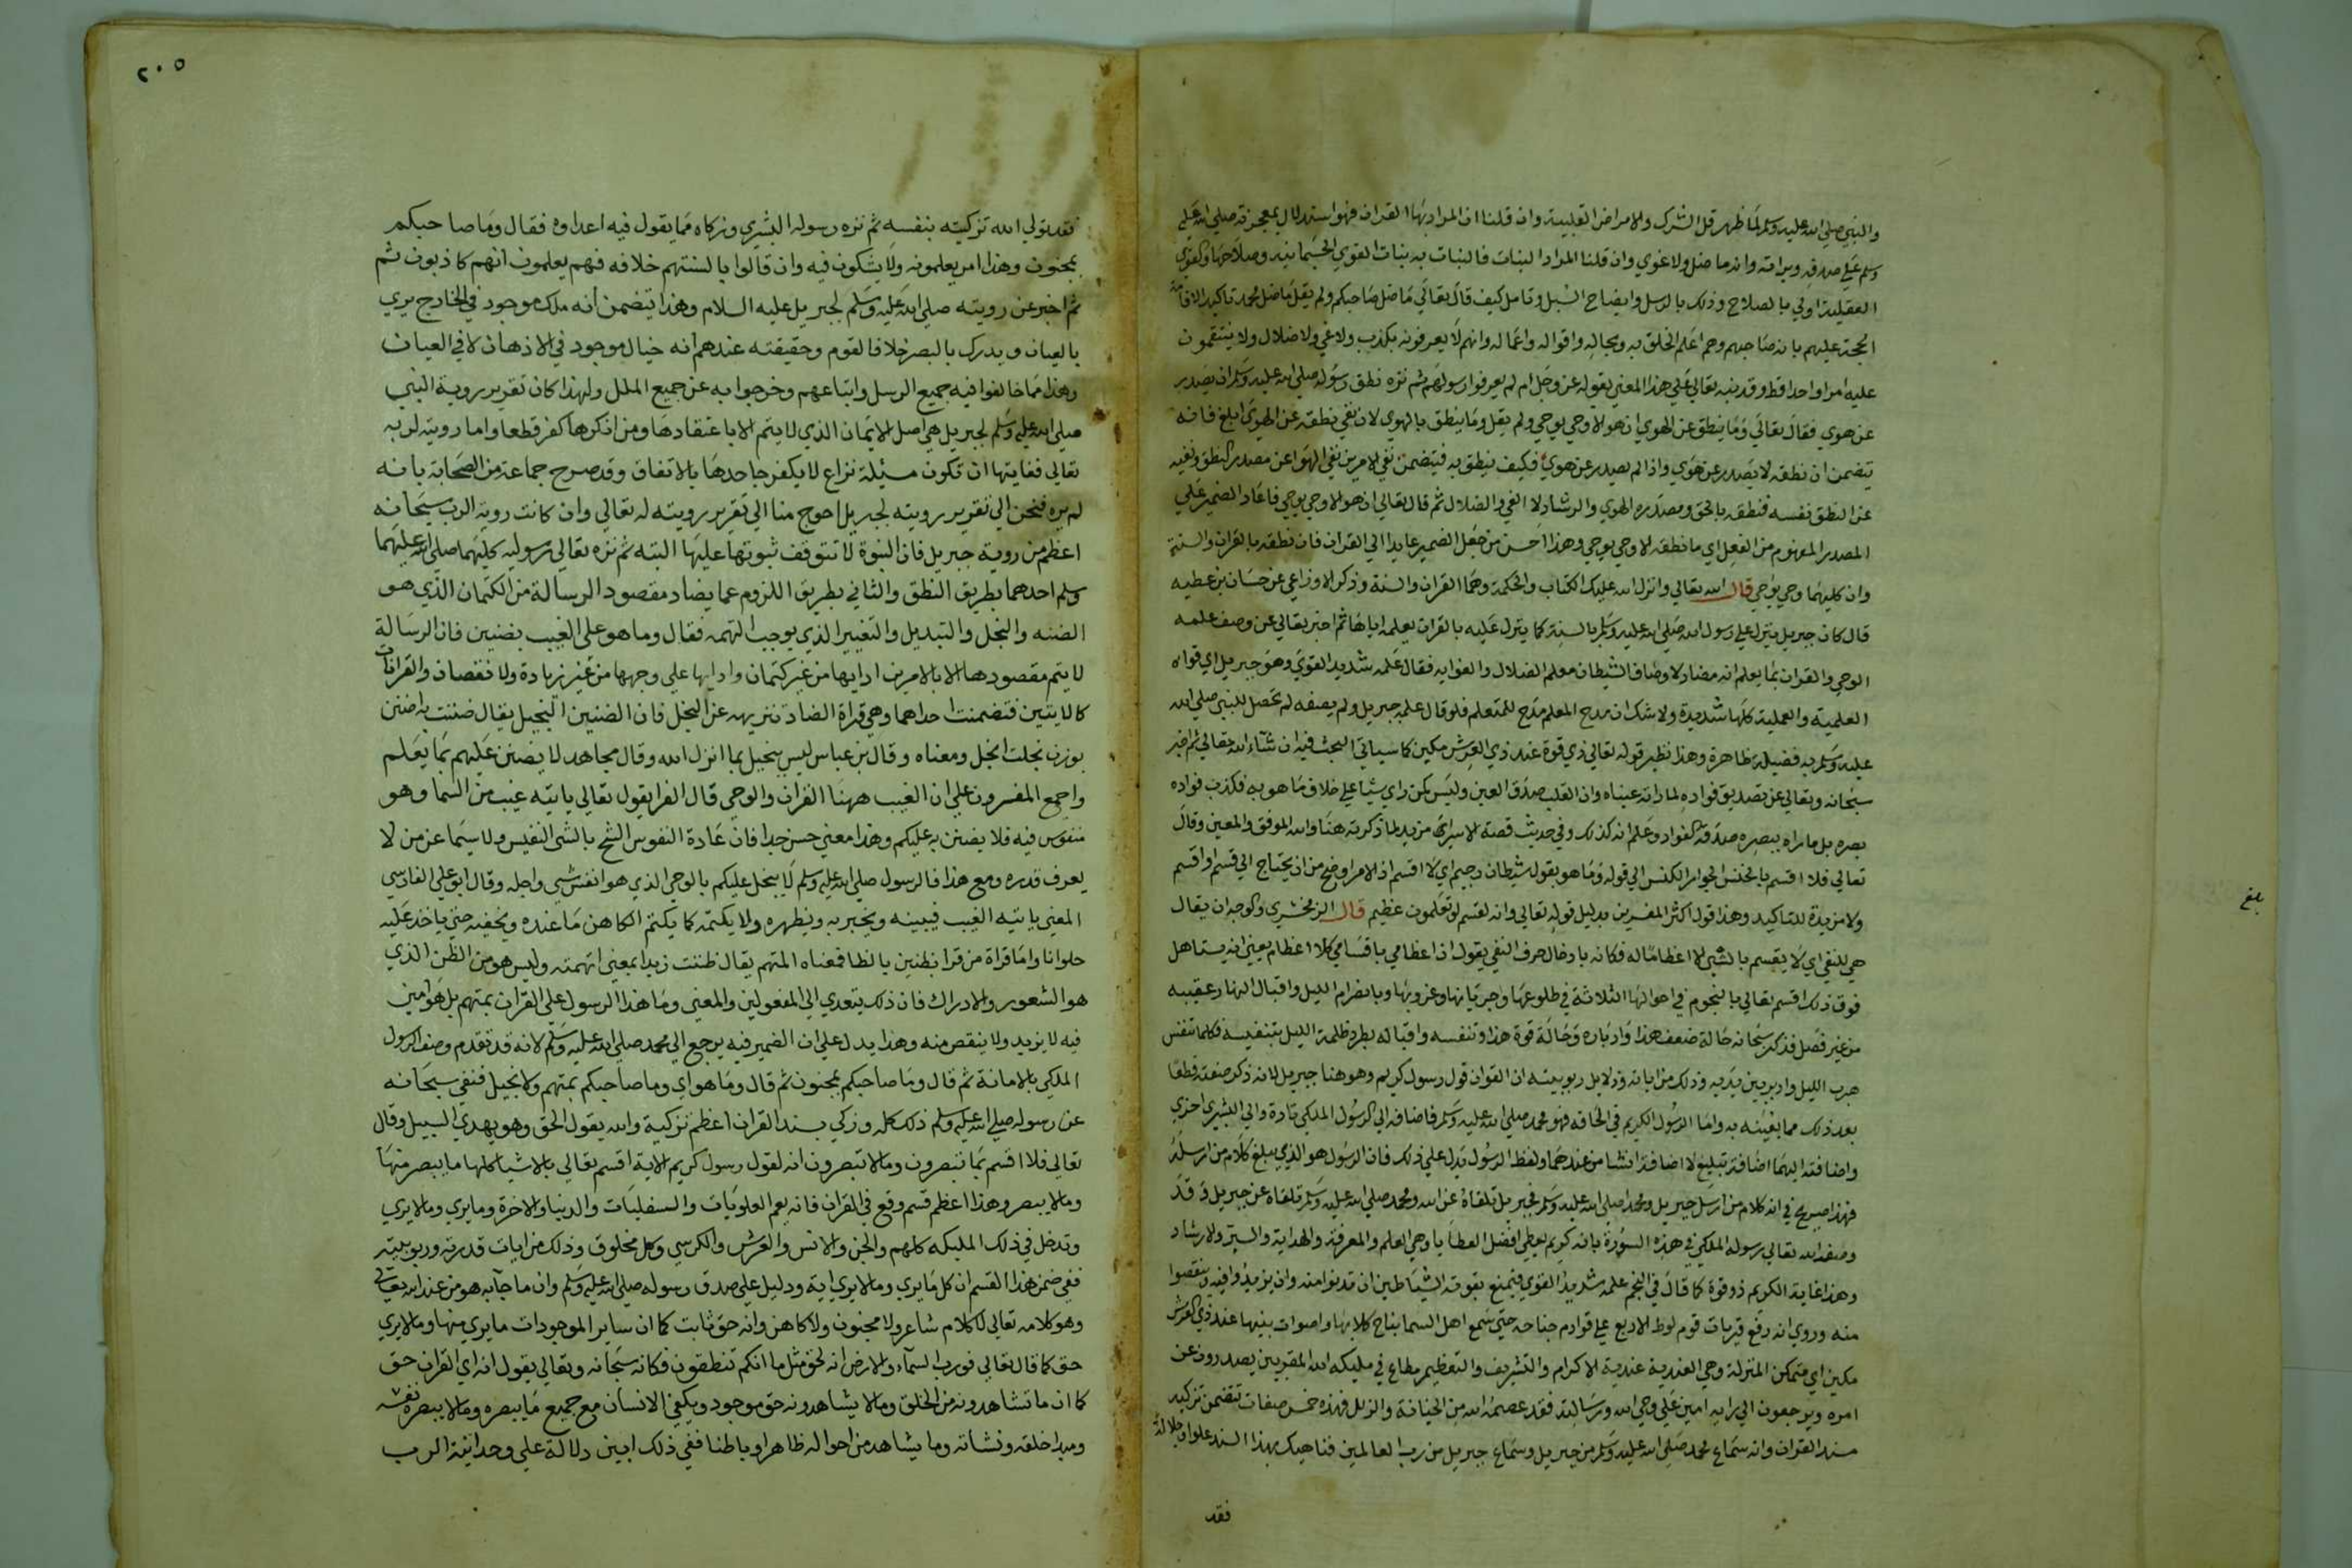 والنبي صلى الله عليه وسلم لما ظهر قل الشرك والامراض القلبية وان قلنا ان المراد بها القران فهو استدلال بمعجزته صلى الله عليه
وسلم على صدقه وبراته وانه ما ضل ولا غوي وان قلنا المراد النبات فالنبات به نبات القوي الجسمانيه وصلاحها والقوي
العقلية اولي بالصلاح وذلك بالرسل وايضاح السبل وتامل كيف قال تعالي ما ضل صاحبكم ولم يقل ما ضل محمد تاكيد الاقامة
الحجة عليهم بانه صاحبهم وهم اعلم الخلق به وبحاله واقواله واعماله وانهم لا يعرفونه بكذب ولا غي ولا ضلال ولا ينتقمون
عليه امرا واحدا قط وقد نبه تعالي علي هذا المعني بقوله عز وجل ام لم يعرفوا رسولهم ثم نزه نطق رسوله صلى الله عليه وسلم ان يصدر
عن هوي فقال تعالي وما ينطق عن الهوي ان هو الا وحي يوحي ولم يقل وما ينطق بالهوي لان نفي نطقه عن الهوي ابلغ فانه
يتضمن ان نطقه لا يصدر عن هوي واذا لم يصدر عن هوي فكيف ينطق به فيتضمن نفي الامرين نفي الهوا عن مصدر النطق ونفيه
عن النطق نفسه فنطقه بالحق ومصدره الهدي والرشاد لا الغي والضلال ثم قال تعالي ان هو الا وحي يوحي فاعاد الضمير علي
المصدر المفهوم من الفعل اي ما نطقه الا وحي يوحي وهذا احسن من جعل الضمير عايدا الي القران فان نطقه بالقران والسنة
وان كليهما وحي يوحي قال الله تعالي وانزل الله عليك الكتاب والحكمة وهما القران والسنة وذكر الاوزاعي عن حسان بن عطيه
قال كان جبريل ينزل علي رسول الله صلى الله عليه وسلم بالسنة كما ينزل عليه بالقران يعلمه اياها ثم اخبر تعالي عن وصف علمه
الوحي والقران بما يعلم انه مضاد لاوصاف الشيطان معلم الضلال والغوايه فقال علمه شديد القوي وهو جبريل اي قواه
العلمية والعملية كلها شديدة ولا شك ان مدح المعلم مدح للمتعلم فلو قال علمه جبريل ولم يصفه لم تحصل للنبي صلى الله
عليه وسلم به فضيلة ظاهرة وهذا نظير قوله تعالي ذي قوة عند ذي العرش مكين كما سياتي البحث فيه ان شاء الله تعالي ثم اخبر
سبحانه وتعالي عن تصديق فواده لما راته عيناه وان القلب صدق العين وليس كمن راي شيئا علي خلاف ما هو به فكذب فواده
بصره بل ما راه ببصره صدقه الفواد وعلم انه كذلك وفي حديث قصة الاسري مزيد لما ذكرته هنا والله الموفق والمعين وقال
تعالي فلا اقسم بالخنس الجوار الكنس الي قوله وما هو بقول شيطان رجيم اي لا اقسم اذ الامر اوضح من ان يحتاج الي قسم او اقسم
ولا مزيدة للتاكيد وهذا قول اكثر المفسرين بدليل قوله تعالي وانه لقسم لو تعلمون عظيم قال الزمخشري والوجه ان يقال
هي للنفي اي لا يقسم بالشي الا اعظاما له فكانه بادخال حرف النفي يقول اذ اعظامي باقسامي كلا اعظام يعني انه يستاهل
فوق ذلك اقسم تعالي بالنجوم في احوالها الثلاثة في طلوعها وجريانها وغروبها وبانصرام الليل واقبال النهار عقيبه
من غير فصل فذكر سبحانه حالة ضعف هذا وادباره وحالة قوة هذا وتنفسه واقباله يطرد ظلمة الليل بتنفسه فكلما تنفس
هرب الليل وادبر بين يديه وذلك من اياته ودلايل ربوبيته ان القران قول رسول كريم وهو هنا جبريل لانه ذكر صفته قطعا
بعد ذلك مما يعينه به واما الرسول الكريم في الحاقه فهو محمد صلى الله عليه وسلم فاضافه الي الرسول الملكي تارة والي البشري اخري
واضافته اليهما اضافة تبليغ لا اضافة انشا من عندهما ولفظ الرسول يدل علي ذلك فان الرسول هو الذي يبلغ كلام من ارسله
فهذا صريح في انه كلام من ارسل جبريل ومحمدا صلى الله عليه وسلم فجبريل تلقاه عن الله ومحمد صلى الله عليه وسلم تلقاه عن جبريل وقد
وصف الله تعالي رسوله الملكي في هذه السورة بانه كريم يعطي افضل العطايا وهي العلم والمعرفة والهداية والبر والارشاد
وهذا غاية الكريم ذو قوة كما قال في النجم علمه شديد القوي فيمنع بقوته الشياطين ان تدنوا منه وان يزيدوا فيه وينقصوا
منه وروي انه رفع قريات قوم لوط الاربع علي قوادم جناحه حتي سمع اهل السما نباح كلابها واصوات بنيها عند ذي العرش
مكين اي متمكن المنزلة وهي العندية عندية الاكرام والتشريف والتعظيم مطاع في مليكه الله المقربين يصدرون عن
امره ويرجعون الي رايه امين علي وحي الله ورسالته فقد عصمه الله من الخيانة والزلل فهذه خمس صفات تتضمن تزكية
سند القران وانه سماع محمد صلى الله عليه وسلم من جبريل وسماع جبريل من رب العالمين فناهيك بهذا السند علوا وجلالة
فقد
بلغ
٢٠٥
فقد تولي الله تزكيته بنفسه ثم نزه رسوله البشري وزكاه مما يقول فيه اعداوه فقال وما صاحبكم
بمجنون وهذا امر يعلمونه ولا يشكون فيه وان قالوا بالسنتهم خلافه فهم يعلمون انهم كاذبون ثم
ثم اخبر عن رويته صلى الله عليه وسلم لجبريل عليه السلام وهذا يتضمن انه ملك موجود في الخارج يري
بالعيان ويدرك بالبصر خلافا لقوم وحقيقته عندهم انه خيال موجود في الاذهان لا في العيان
وهذا مما خالفوا فيه جميع الرسل واتباعهم وخرجوا به عن جميع الملل ولهذا كان تقرير روية النبي
صلى الله عليه وسلم لجبريل هي اصل الايمان الذي لا يتم الا باعتقادها ومن انكرها كفر قطعا واما رويته لربه
تعالي فغايتها ان تكون مسيلة نزاع لا يكفر جاحدها بالاتفاق وقد صرح جماعة من الصحابة بانه
لم يره فنحن الي تقرير رويته لجبريل احوج منا الي تقرير رويته له تعالي وان كانت روية الرب سبحانه
اعظم من روية جبريل فان النبوة لا تتوقف ثبوتها عليها البته ثم نزه تعالي رسوليه كليهما صلى الله عليهما
وسلم احدهما بطريق النطق والثاني بطريق اللزوم عما يضاد مقصود الرسالة من الكتمان الذي هو
الضنه والبخل والتبديل والتغيير الذي يوجب التهمه فقال وما هو علي الغيب بضنين فان الرسالة
لا يتم مقصودها الا بالامرين ادايها من غير كتمان وادايها علي وجهها من غير زيادة ولا نقصان والقراتان
كالايتين فتضمنت احداهما وهي قراة الضاد تنزيهه عن البخل فان الضنين البخيل يقال ضننت به اضن
بوزن بخلت ابخل ومعناه وقال بن عباس ليس ببخيل بما انزل الله وقال مجاهد لا يضن عليهم بما يعلم
واجمع المفسرون علي ان الغيب ههنا القران والوحي قال الفرا يقول تعالي ياتيه غيب من السما وهو
منفوس فيه فلا يضنن به عليكم وهذا معني حسن جدا فان عادة النفوس الشح بالشي النفيس ولا سيما عن من لا
يعرف قدره ومع هذا فالرسول صلى الله عليه وسلم لا يبخل عليكم بالوحي الذي هو انفس شي واجله وقال ابو علي الفارسي
المعني ياتيه الغيب فيبينه ويخبر به ويظهره ولا يكتمه كما يكتم الكاهن ما عنده ويخفيه حتي ياخذ عليه
حلوانا واما قراة من قرا بظنين بالظا فمعناه المتهم يقال ظننت زيدا بمعني اتهمته وليس هو من الظن الذي
هو الشعور والادراك فان ذلك يتعدي الي المفعولين والمعني وما هذا الرسول علي القران بمتهم بل هو امين
فيه لا يزيد ولا ينقص منه وهذا يدل علي ان الضمير فيه يرجع الي محمد صلى الله عليه وسلم لانه قد تقدم وصف الرسول
الملكي بالامانة ثم قال وما صاحبكم بمجنون ثم قال وما هو اي وما صاحبكم بمتهم ولا بخيل فنفي سبحانه
عن رسوله صلى الله عليه وسلم ذلك كله وزكي سند القران اعظم تزكية والله يقول الحق وهو يهدي السبيل وقال
تعالي فلا اقسم بما تبصرون وما لا تبصرون انه لقول رسول كريم الاية اقسم تعالي بالاشيا كلها ما يبصر منها
وما لا يبصر وهذا اعظم قسم وقع في القران فانه يعم العلويات والسفليات والدنيا والاخرة وما يري وما لا يري
وتدخل في ذلك المليكه كلهم والجن والانس والعرش والكرسي وكل مخلوق وذلك من ايات قدرته وربوبيته
ففي ضمن هذا القسم ان كل ما يري وما لا يري اية ودليل علي صدق رسوله صلى الله عليه وسلم وان ما جا به هو من عند الله تعالي
وهو كلامه تعالي لا كلام شاعر ولا مجنون ولا كاهن وانه حق ثابت كما ان ساير الموجودات ما يري منها وما لا يري
حق كما قال تعالي فورب السماء والارض انه لحق مثل ما انكم تنطقون فكانه سبحانه وتعالي يقول انه اي القران حق
كما ان ما تشاهدونه من الخلق وما لا يشاهدونه حق موجود ويكفي الانسان مع جميع ما يبصره وما لا يبصره نفسه
ومبدا خلقه ونشاته وما يشاهد من احواله ظاهرا وباطنا ففي ذلك ابين دلالة علي وحدانية الرب